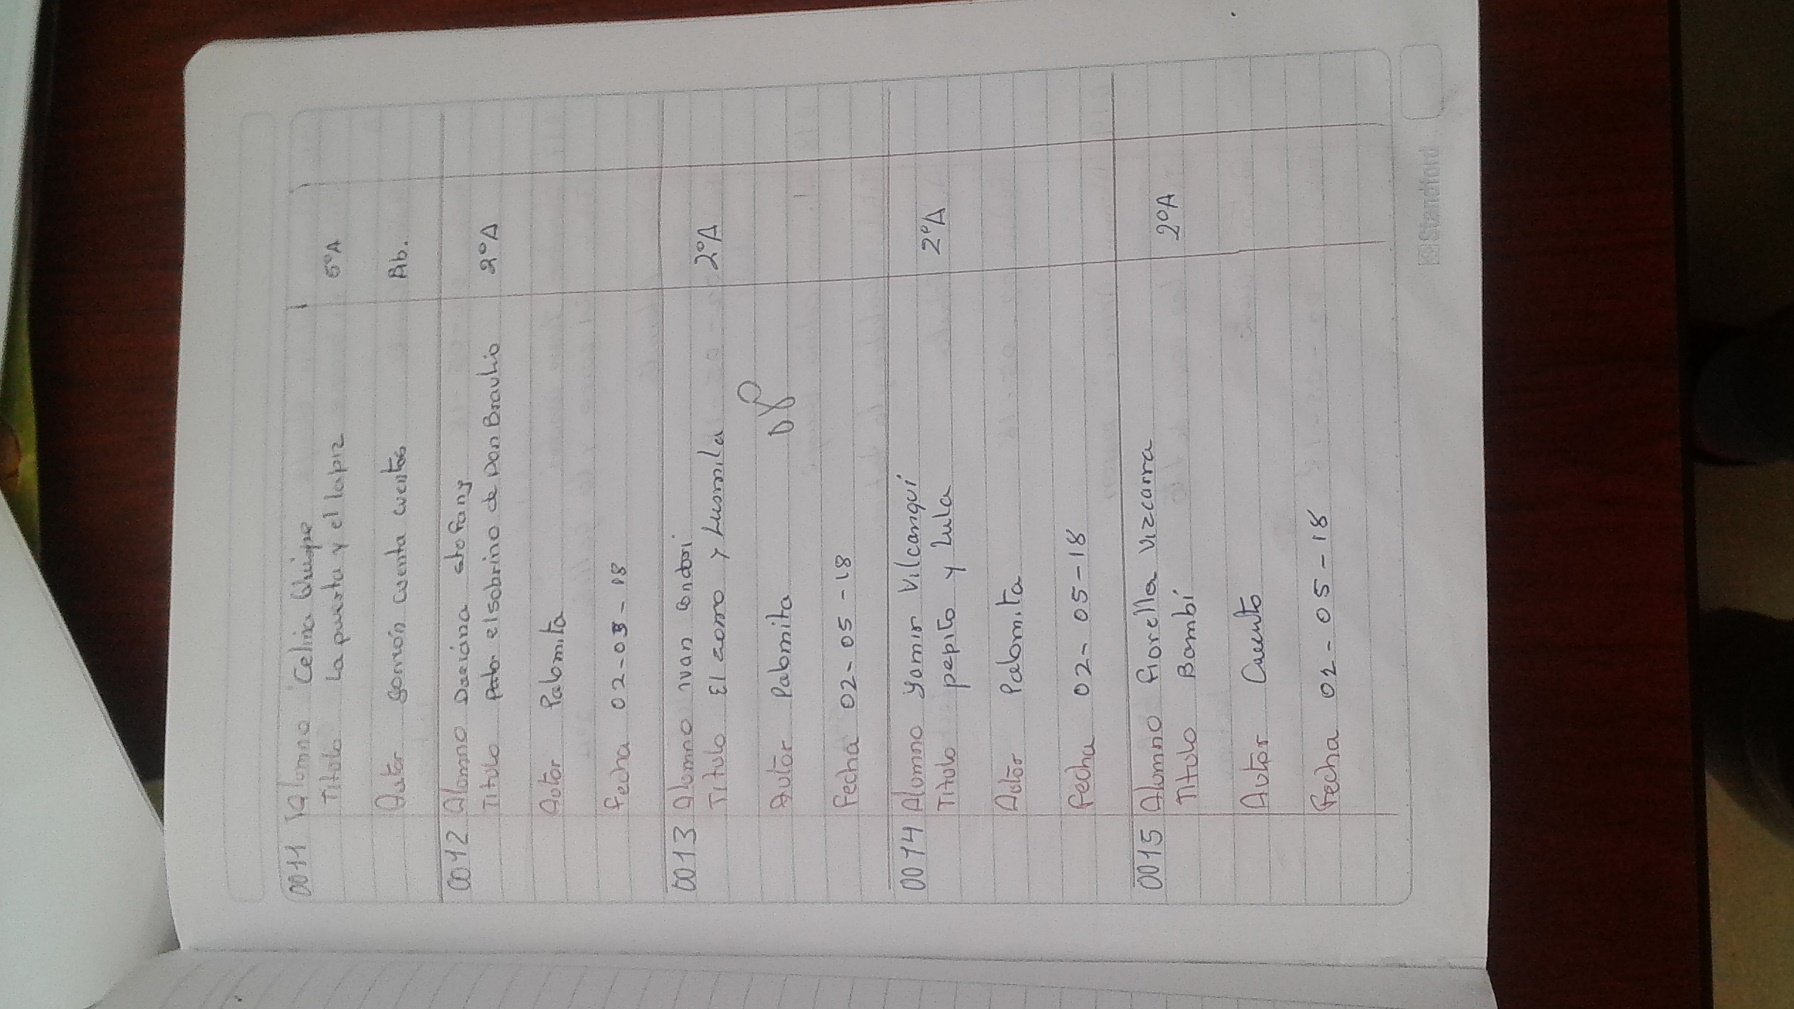 0011 Alumno Celina Quispe
Titulo La puerta y el lapiz 5ºA
Autor Gorrión cuenta cuentos Ab.
0012 Alumno Daciana
Titulo el sobrino de Don Braulio 2ºA
Autor Palomita
Fecha 02-05-18
0013 Alumno Ivan Condori
Titulo El zorro y Luzmila 2ºA
Autor Palomita
Fecha 02-05-18
0014 Alumno Yamir Vilcanqui
Titulo pepito y Lula 2ºA
Autor Palomita
Fecha 02-05-18
0015 Alumno fiorella Vizcarra
Titulo Bambi 2ºA
Autor Cuento
Fecha 02-05-18
Standford